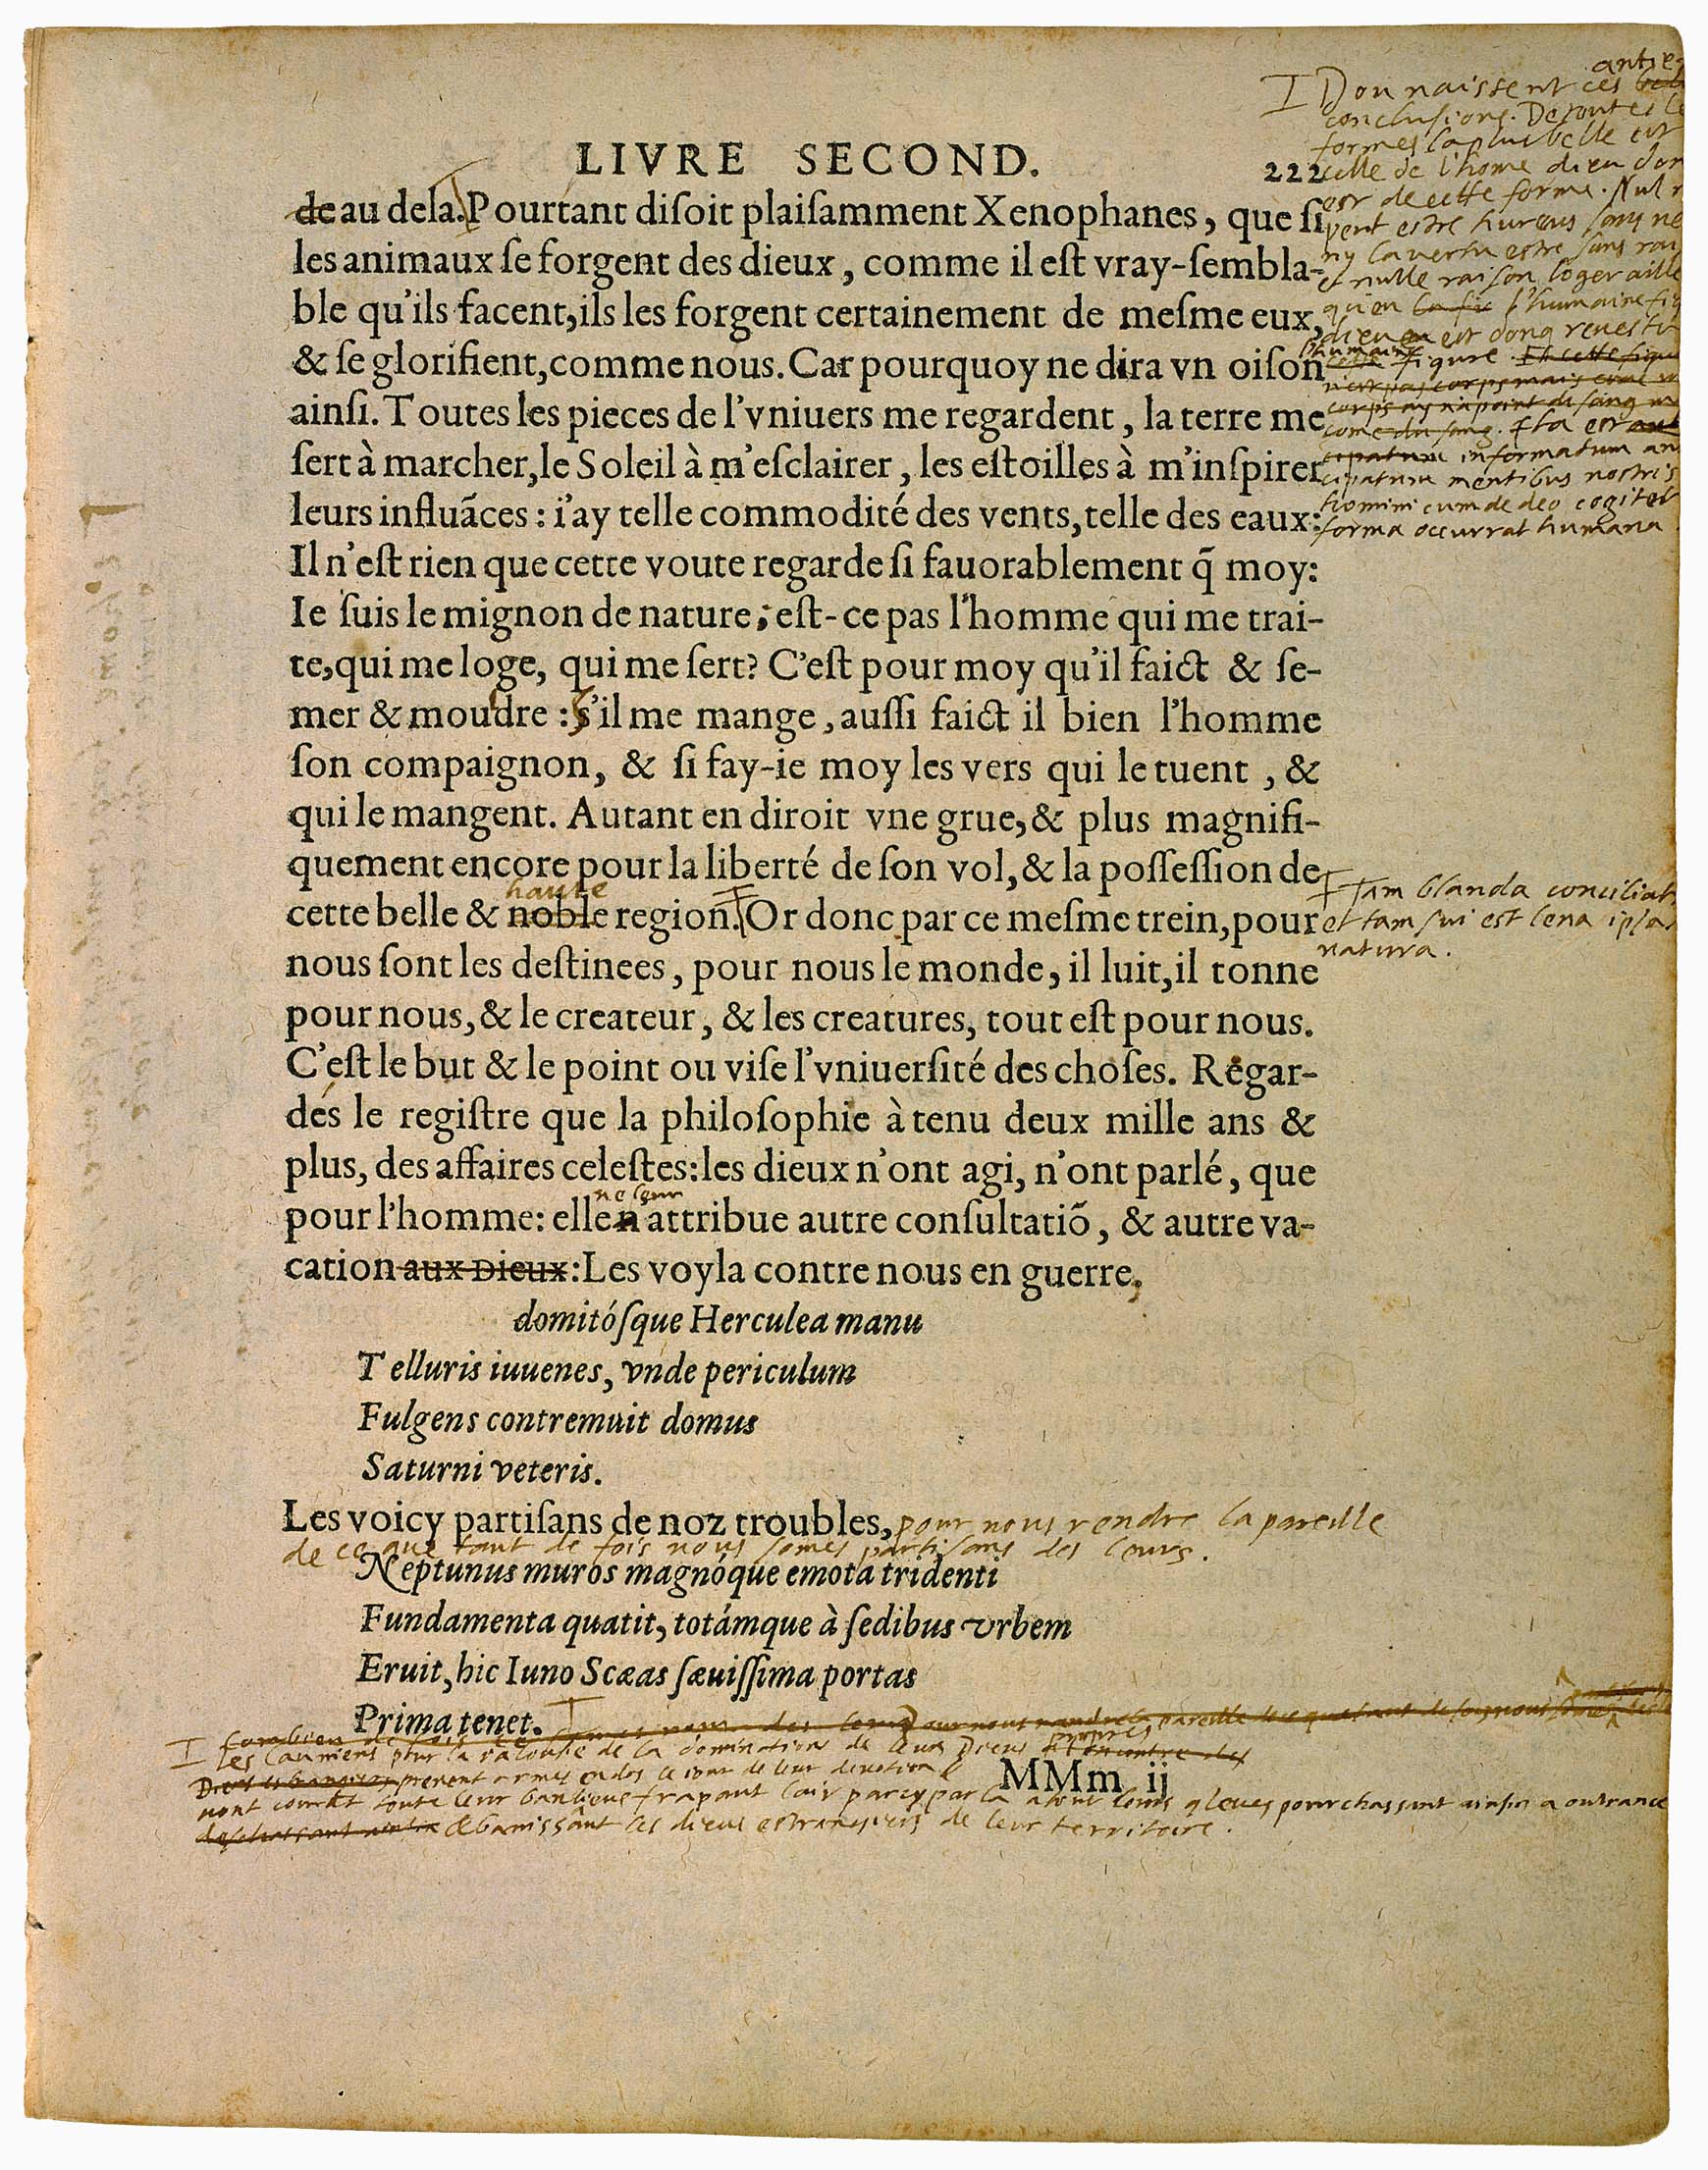 I Dou naissent ces
antie
conclusions. De toutes le
formes la plus belle est
celle de l'home dieu don
est de cette forme. Nul n
peut estre hureus sans ne
ny la vertu estre sans rai
et nulle raison loger aille
qu'en la fi l'humaine fi
dieu en est donq revestu
l'humaine
figure. Et cette figu
n'est pas corps mais come
corps ny n'a point de sang
come du sang. Ita est
informatum an
cipatum mentibus nostris
homini cum de deo cogitet
forma occurrat humana
LIVRE SECOND. 222
de au dela. Pourtant diſoit plaiſamment Xenophanes, que ſi
les animaux ſe forgent des dieux, comme il eſt vray-ſembla-
ble qu'ils facent, ils les forgent certainement de meſme eux,
& ſe glorifient, comme nous. Car pourquoy ne dira vn oiſon
ainſi. Toutes les pieces de l'vniuers me regardent, la terre me
ſert à marcher, le Soleil à m'eſclairer, les eſtoilles à m'inſpirer
leurs influãces: i'ay telle commodité des vents, telle des eaux:
Il n'eſt rien que cette voute regarde ſi fauorablement q̃ moy:
Ie ſuis le mignon de nature; eſt-ce pas l'homme qui me trai-
te, qui me loge, qui me ſert? C'eſt pour moy qu'il faict & ſe-
mer & moudre: s'il me mange, auſſi faict il bien l'homme
ſon compaignon, & ſi fay-ie moy les vers qui le tuent, &
qui le mangent. Autant en diroit vne grue, & plus magnifi-
quement encore pour la liberté de ſon vol, & la poſſeſſion de
haute
cette belle & noble region. Or donc par ce meſme trein, pour
Tam blanda conciliat
et tam sui est lena ipsa
natura.
nous ſont les deſtinees, pour nous le monde, il luit, il tonne
pour nous, & le createur, & les creatures, tout eſt pour nous.
C'eſt le but & le point ou viſe l'vniuerſité des choſes. Regar-
dés le regiſtre que la philoſophie à tenu deux mille ans &
plus, des affaires celeſtes: les dieux n'ont agi, n'ont parlé, que
ne leur
pour l'homme: elle n'attribue autre conſultatiõ, & autre va-
cation aux Dieux: Les voyla contre nous en guerre,
domitóſque Herculea manu
Telluris iuuenes, vnde periculum
Fulgens contremuit domus
Saturni veteris.
Les voicy partiſans de noz troubles, pour nous rendre la pareille
de ce que tant de fois nous somes partisans des leurs.
Neptunus muros magnóque emota tridenti
Fundamenta quatit, totámque à ſedibus vrbem
Eruit, hic Iuno Scæas ſæuiſſima portas
Prima tenet.
Les Cauniens pour la ialousie de la domination de leurs Dieus propres
prenent armes en dos le iour de leur devotion
MMm ij
vont courant toute leur banlieue frapant l'air par cy par la atout leurs gleves pourchassant ainsin a outrance
& banissant les dieus estrangiers de leur territoire.